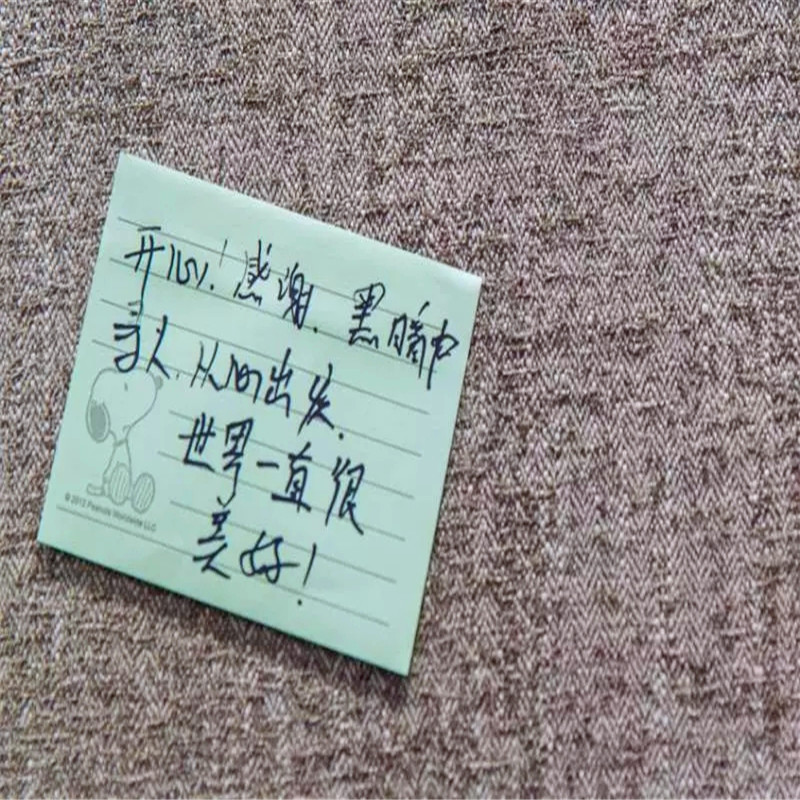 开心!感谢.黑暗中
寻人.从心出发.
世界一直很
美好!
© 2013 Peanuts Worldwide LLC